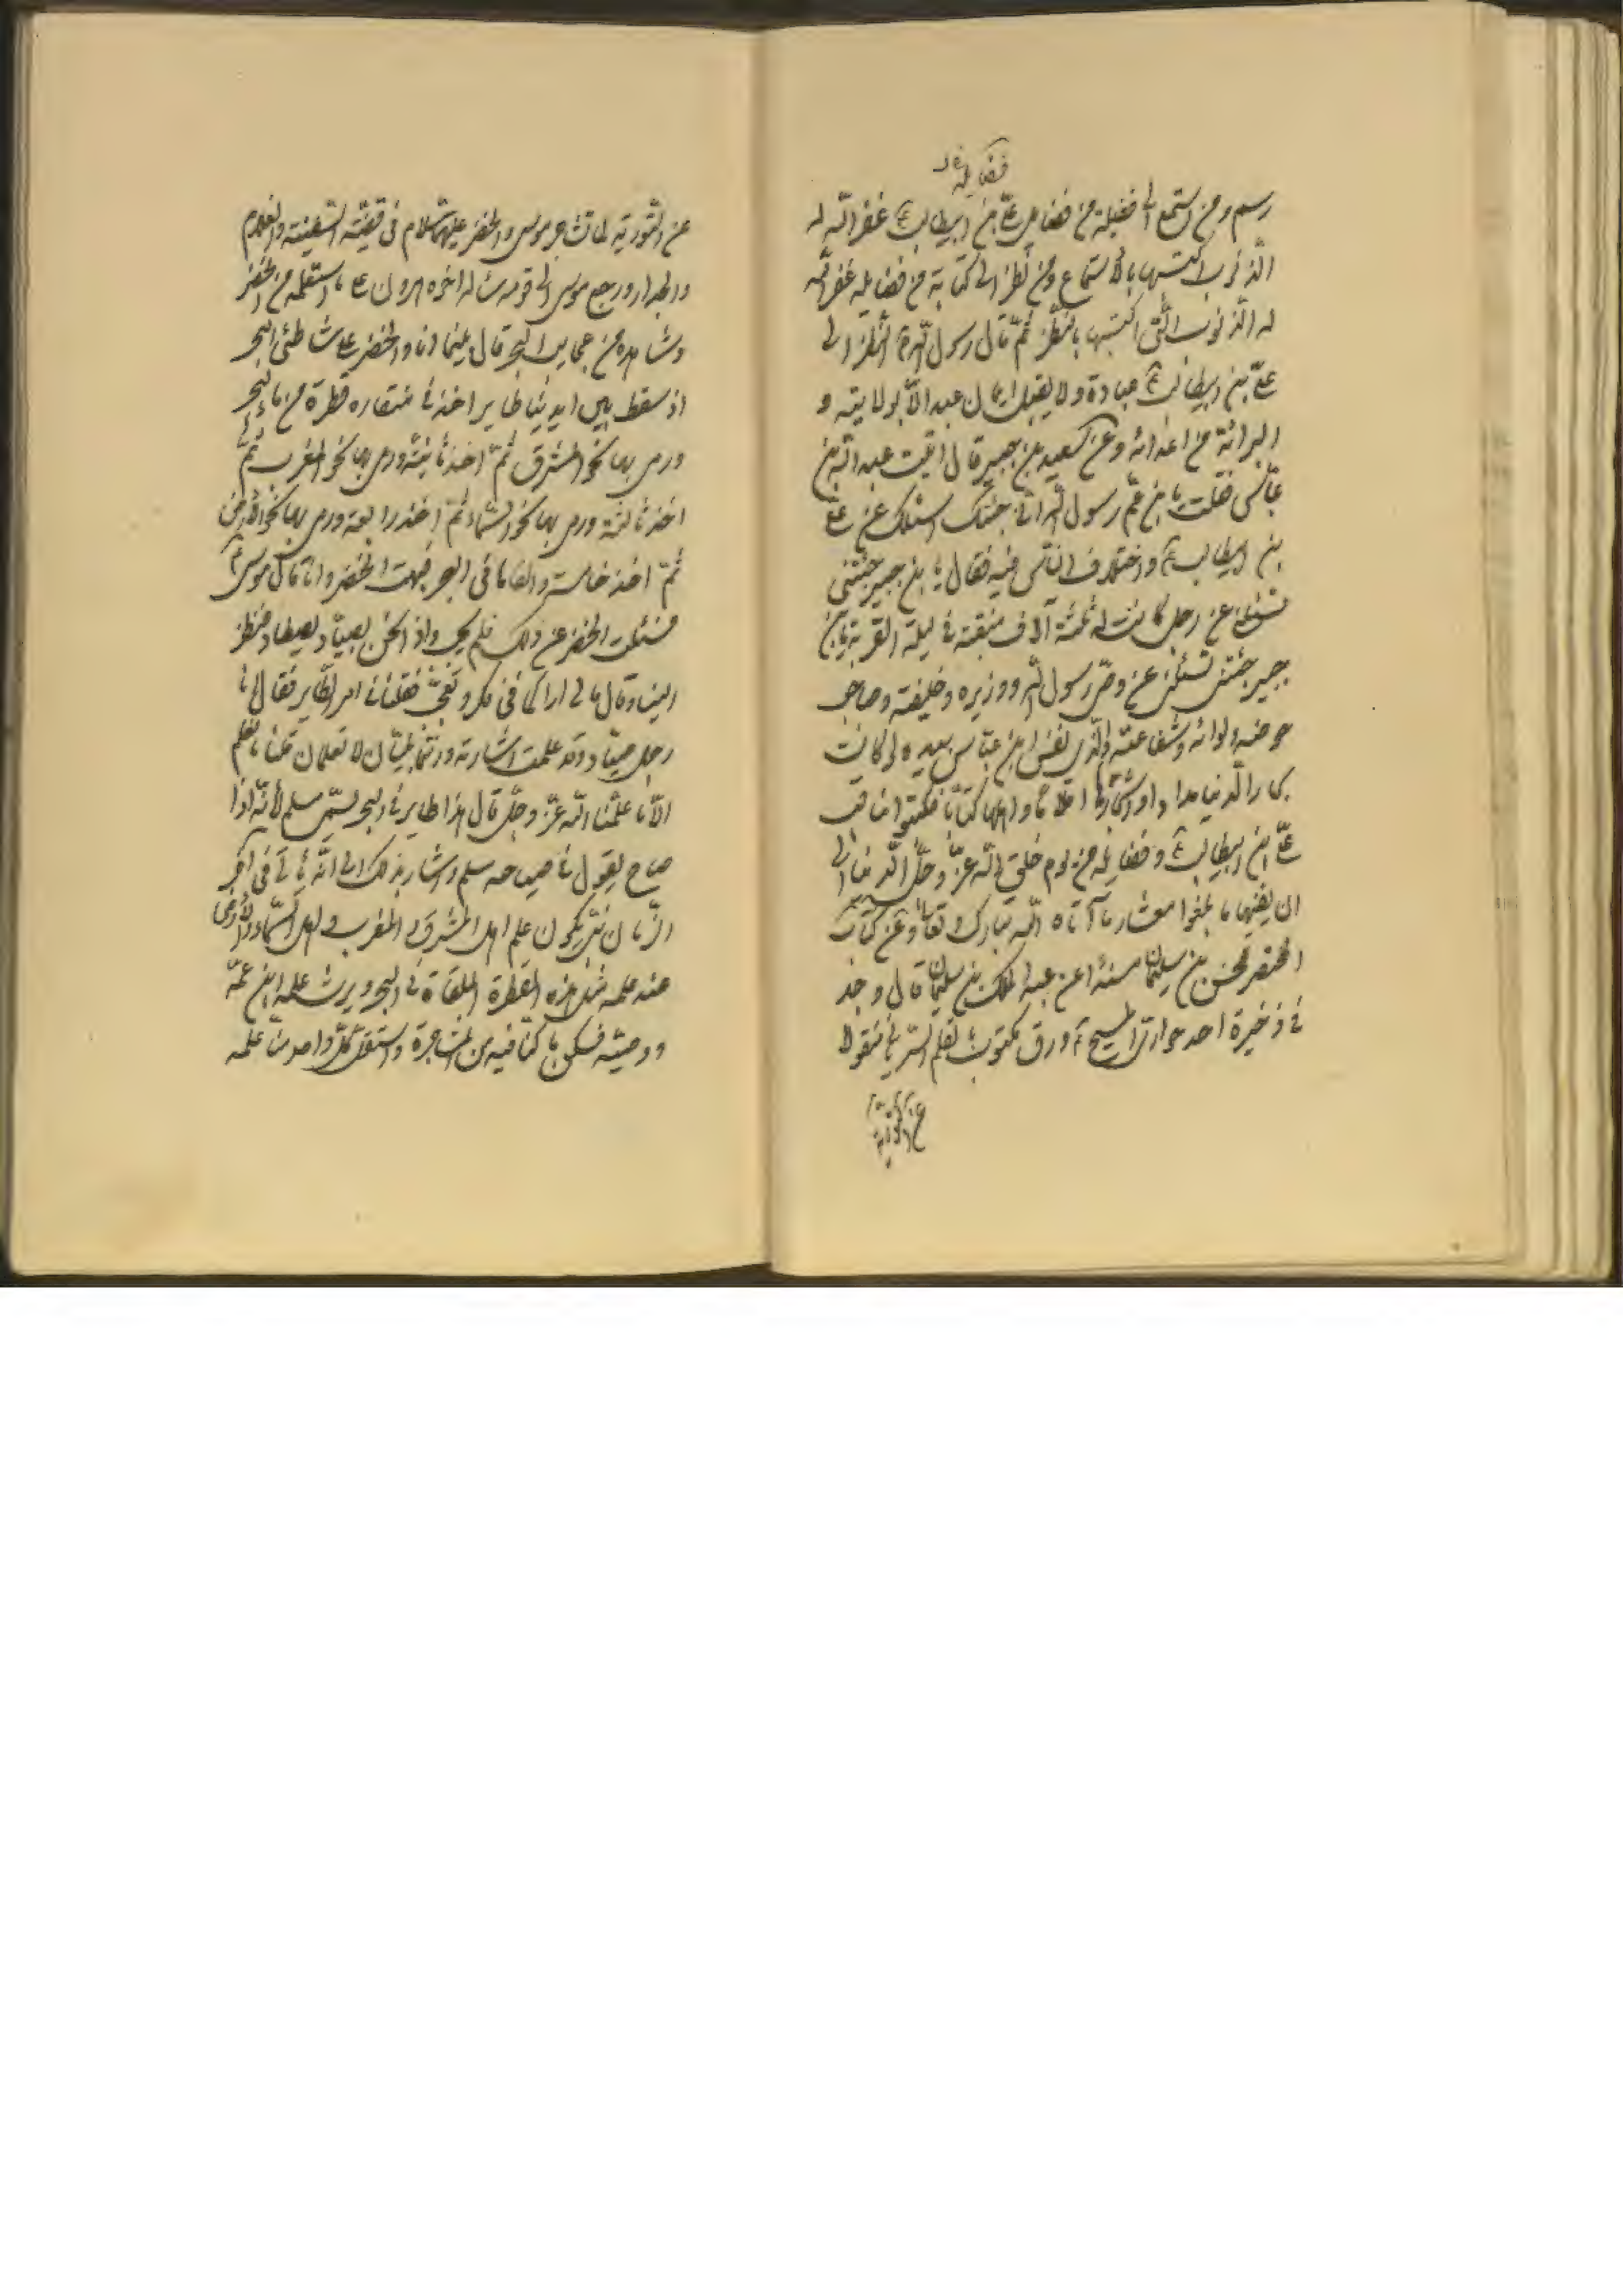 فضايله
رسم ومن استمع الى فضيلة من فضايل علي بن ابيطالب ع غفر الله له
الذنوب اكتسبها بالاستماع ومن نظر الى كتابة من فضايله غفر الله
له الذنوب التى اكتسبها بالنظر ثم قال رسول الله النظر الى
علي بن ابيطالب ع عبادة ولا يقبل ايمان عبد الا بولايته و
البرائة من اعدائه وعن سعيد بن جبير قال اتيت عبد الله بن
عباس فقلت يا بن عم رسول الله انى جئتك اسئلك عن علي
بن ابيطالب ع واختلاف الناس فيه فقال يا بن جبير جئتنى
تسئلنى عن رجل كانت له ثلثة آلاف منقبة فى ليلة القربة يا بن
جبير جئتنى تسئلنى عن وصى رسول الله ووزيره وخليفته وصاحب
حوضه ولوائه وشفاعته والذى نفس ابن عباس بيده لو كانت
بحار الدنيا مدادا واشجارها اقلاما واهلها كتابا فكتبوا مناقب
علي ابن ابيطالب ع وفضايله من يوم خلق الله عز وجل الدنيا الى
ان يفنيها ما بلغوا معشار ما آتاه الله تبارك وتعالى وعن كتاب
المختصر لحسن بن سليمان مسندا عن عبد الملك بن سليمان قال وجد
فى ذخيرة احد حوارى المسيح ع ورق مكتوب بالقلم السريانى منقولا
عن التورية
عن التورية لما تشاجر موسى والخضر عليهما السلام فى قضية السفينة والغلام
والجدار ورجع موسى الى قومه سئله اخوه هرون عما استعلمه من الخضر
وشاهده من عجايب البحر قال بينما انا والخضر على شاطئ البحر
اذ سقط بين ايدينا طاير اخذ فى منقاره قطرة من ماء البحر
ورمى بها نحو المشرق ثم اخذ ثانية ورمى بها نحو المغرب ثم
اخذ ثالثة ورمى بها نحو السماء ثم اخذ رابعة ورمى بها نحو الارض
ثم اخذ خامسة والقاها فى البحر فبهت الخضر وانا قال موسى
فسئلت الخضر عن ذلك فلم يجب واذا نحن بصياد يصطاد فنظر
الينا وقال مالى اراكما فى فكر وتعجب فقلنا فى امر الطاير فقال انا
رجل صياد وقد علمت اشارته وانتما نبيان لا تعلمان قلنا ما نعلم
الا ما علمنا الله عز وجل قال هذا طاير فى البحر يسمى مسلم لانه اذا
صاح يقول فى صياحه مسلم واشار بذلك الى انه يأتى فى آخر
الزمان نبى يكون علم اهل المشرق والمغرب واهل السماء والارض
عند علمه مثل هذه القطرة الملقاة فى البحر ويرث علمه ابن عمه
ووصيه فسكن ما كنا فيه من المشاجرة واستقل كل واحد منا علمه